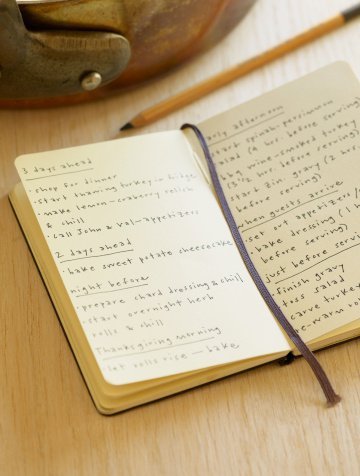 3 days ahead
· shop for dinner
· start thawing turkey in fridge
· make lemon-cranberry relish
& chill
· call John & Val - appetizers
2 days ahead
· bake sweet potato cheesecake
night before
· prepare chard dressing & chill
· start overnight herb
rolls & chill
Thanksgiving morning
let rolls rise — bake
early afternoon
start spinach-persimmon
salad (4 hrs. before serving)
bbq wine-smoked turkey
(3 1/2 hrs. before serving)
start gravy (2 hrs.
before serving)
when guests arrive
· set out appetizers
· bake dressing (1
before serving)
just before
· finish gravy
toss salad
carve turkey
re-warm